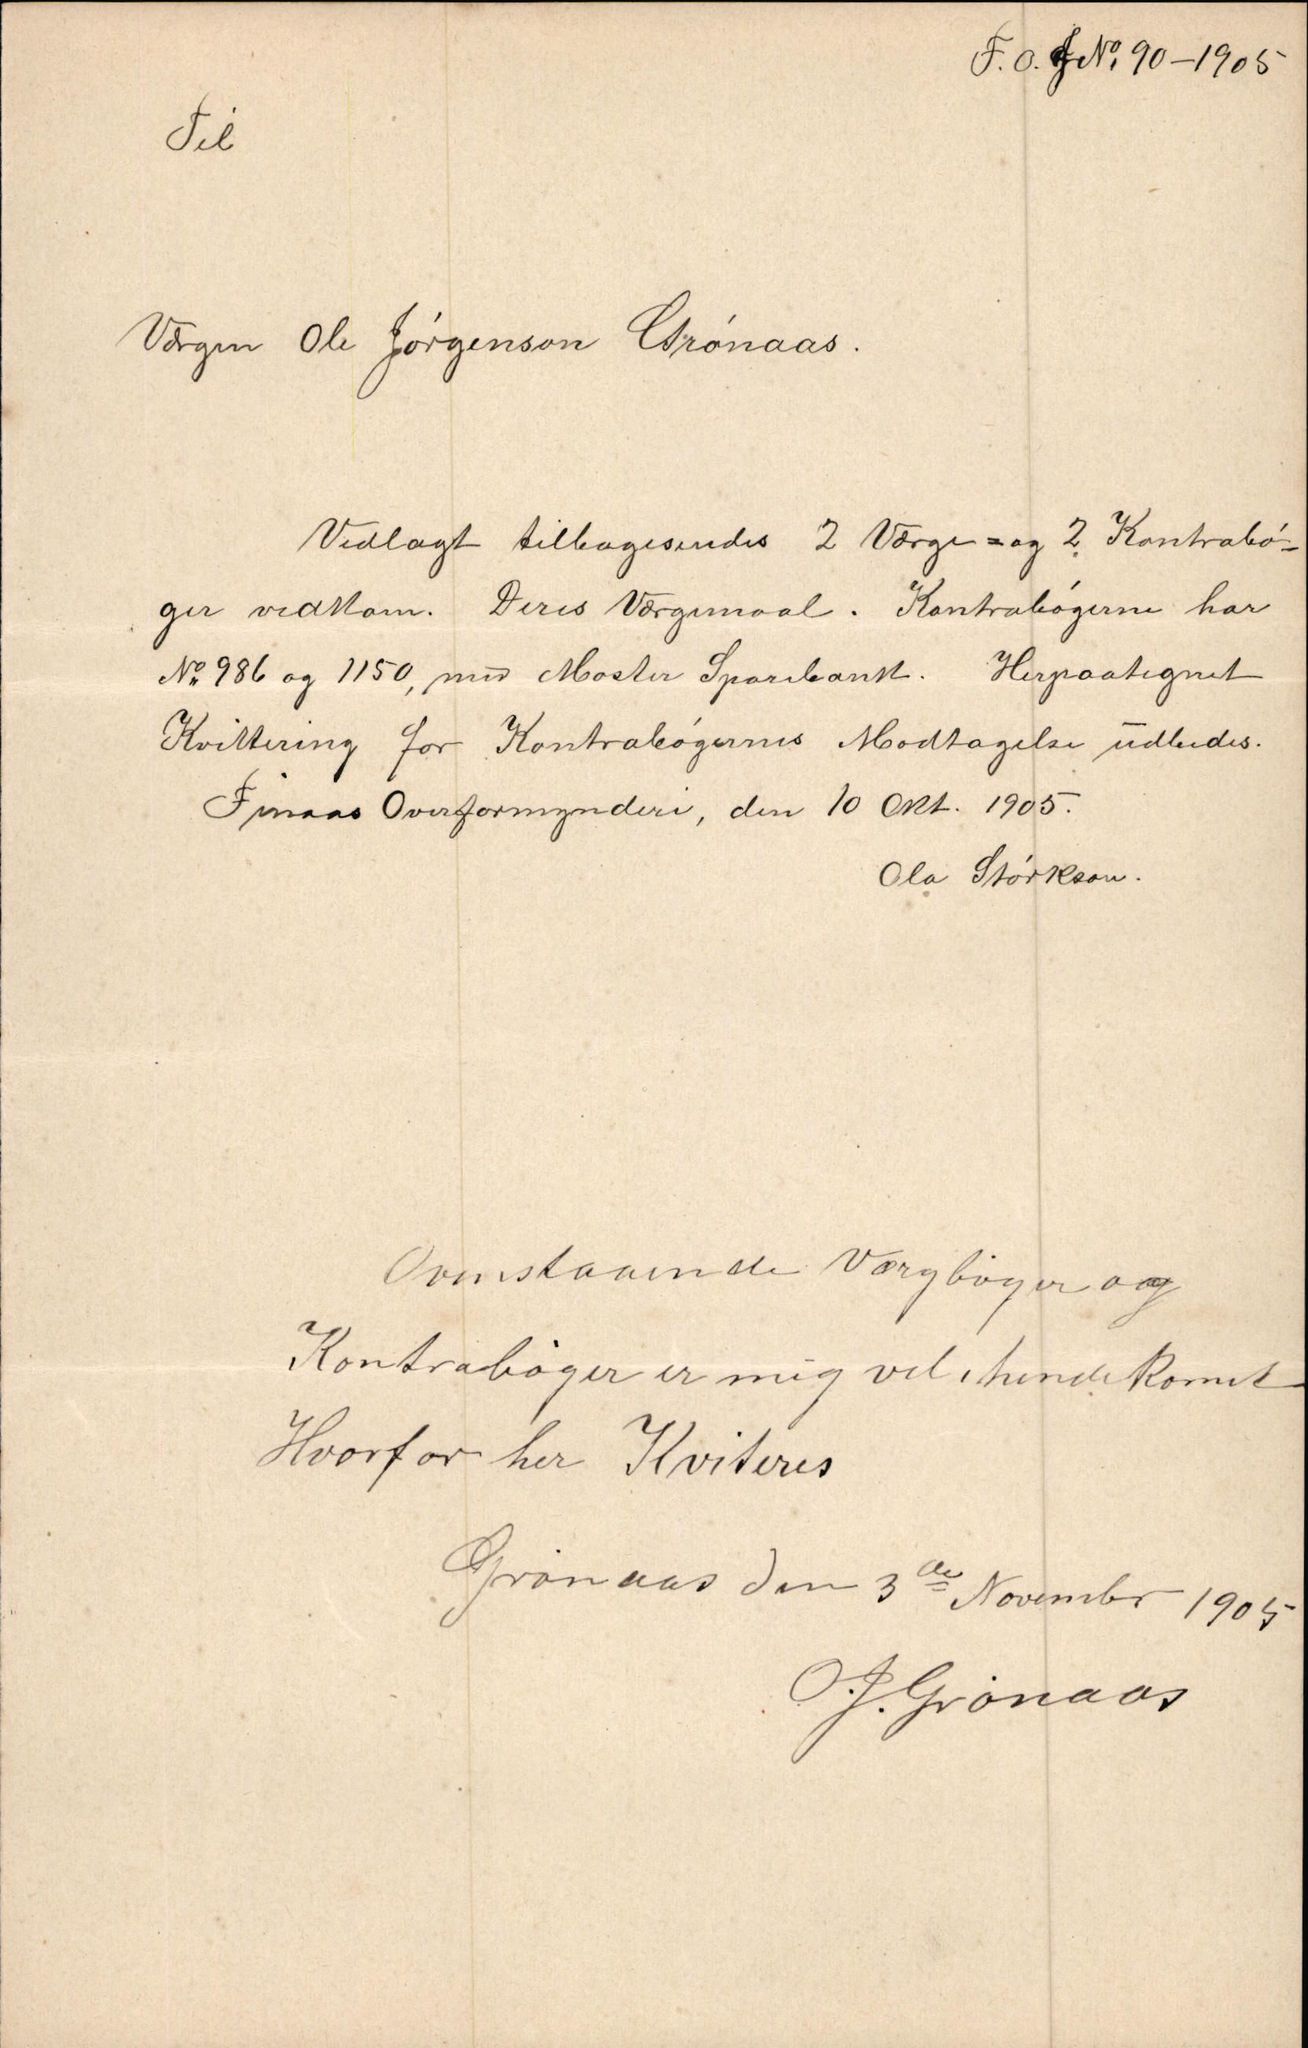 F. O. J No. 90 - 1905
Til
Værgen Ole Jórgenson Grónaas.
Vedlagt tilbagesendes 2 Værge= og 2 Kontrabó-
ger vedkom. Deres Værgemaal. Kontrabógerne har
No. 986 og 1150, med Moster Sparebank. Herpaategnet
Kvittering for Kontrabógernes Modtagelse udbedes.
Finaas Overformynderi, den 10 Okt. 1905.
Ola Stórkson.
Ovenstaaende Værgbøger og
Kontrabøger er mig vel ihendekomet
Hvorfor her Kviteres
Grønaas den 3de November 1905
O. J. Grønaas